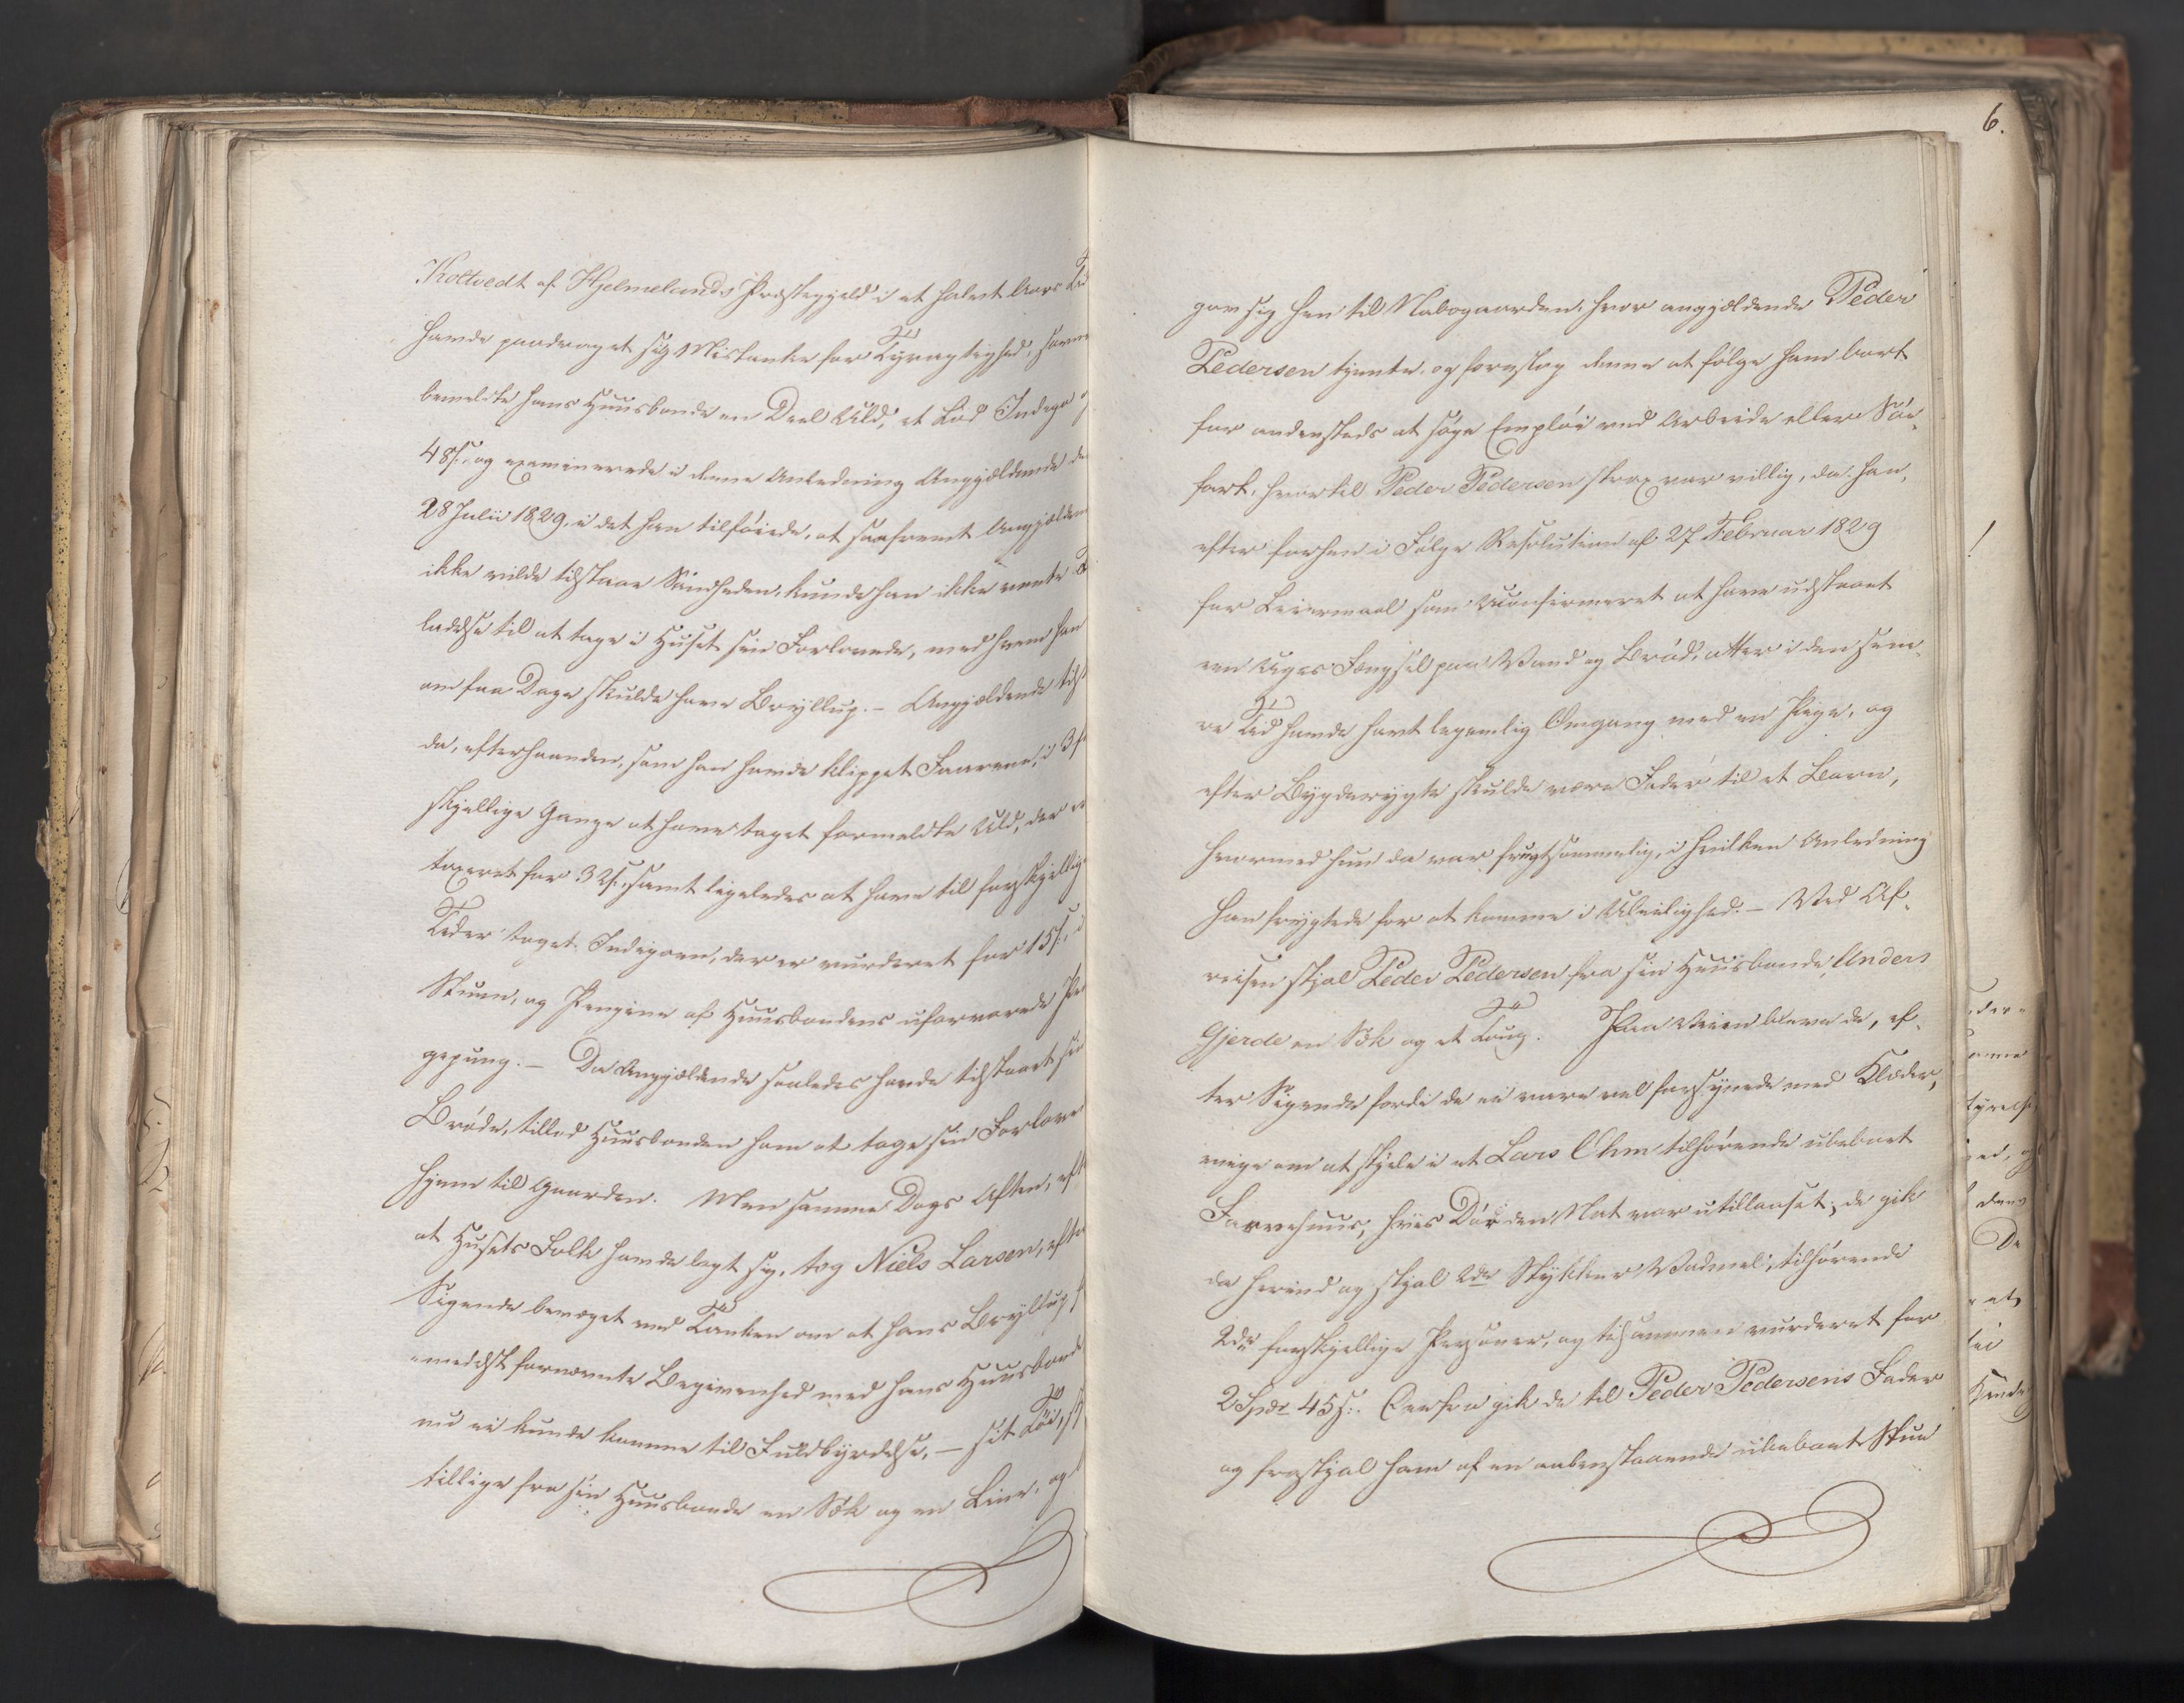 Koltvedt af Hjelmelands Præstegjeld i et halvt Aars Tid
havde paadraget sig Mistanke for Tyvagtighed, savne
bemeldte hans Huusbonde en Deel Uld, et Lod Indego og
48 s., og examinerede i denne Anledning Angjældende de
28 Julii 1829, i det han tilføiede, at saafremt Angjælden
ikke vilde tilstaae Sandheden, kunde han ikke vente
ladelse til at tage i Huset sin Forlovede, med hvem han
om faa Dage skulde have Bryllup. – Angjældende tilst
da, efterhaanden, som han havde klippet Faarene, i 3 f
skjellige Gange at have taget formeldte Uld, der er
taxeret for 32 s., samt ligeledes at have til forskjellig
Tider taget Indigoen, der er vurderet for 15 s., i
Stuen, og Pengene af Huusbondens uforvarede Pe
gepung. – Da Angjældende saaledes havde tilstaaet sin
Brøde, tillod Huusbonden ham at tage sin Forlove
hjem til Gaarden. Men samme Dags Aften, eft
at Husets Folk havde lagt sig, tog Niels Larsen, efter
Sigende bevæget ved Tanken om at hans Bryllup f
medelst fornævnte Begivenhed med hans Huusbonde
nu ei kunde komme til Fuldbyrdelse, – sit Tøi, st
tillige fra sin Huusbonde en Sæk og en Line, og
6.
gav sig hen til Nabogaarden, hvor angjældende Peder
Pedersen tjente, og foreslog denne at følge ham bort
for andensteds at søge Emploi ved Arbeide eller Søe-
fart, hvortil Peder Pedersen strax var villig, da han,
efter forhen i Følge Resolution af 27 Februar 1829
for Leiermaal som Uconfirmeret at have udstaaet
een Uges Fængsel paa Vand og Brød, atter i den sene-
re Tid havde havt legemlig Omgang med en Pige, og
efter Bygderygte skulde være Fader til et Barn,
hvormed hun da var frugtsommelig, i hvilken Anledning
han frygtede for at komme i Uleilighed. – Ved Af-
reisen stjal Peder Pedersen fra sin Huusbonde Anders
Gjerde en Sæk og et Toug. Paa Veien bleve de, ef-
ter Sigende fordi de ei vare vel forsynede med Klæder,
enige om at stjele i et Lars Ohm tilhørende ubeboet
Farvehuus, hvis Dør den Nat var utillaaset; de gik
da herind og stjal 2de Stykker Vadmel, tilhørende
2de forskjellige Personer, og tilsammen vurderet for
2 Spdr 45 s. Derfra gik de til Peder Pedersens Fader
og frastjal ham af en aabenstaaende ubeboet Stue